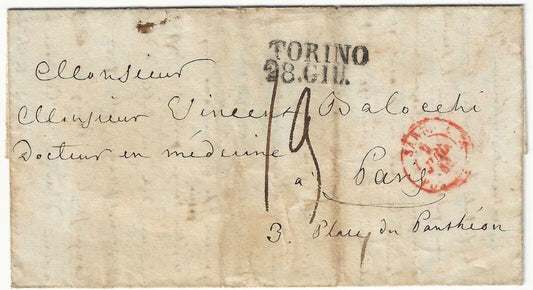 TORINO
28.GIU.
Monsieur
Monsieur Vincent Balocchi
Docteur en médecine
à Paris
3. Place du Panthéon